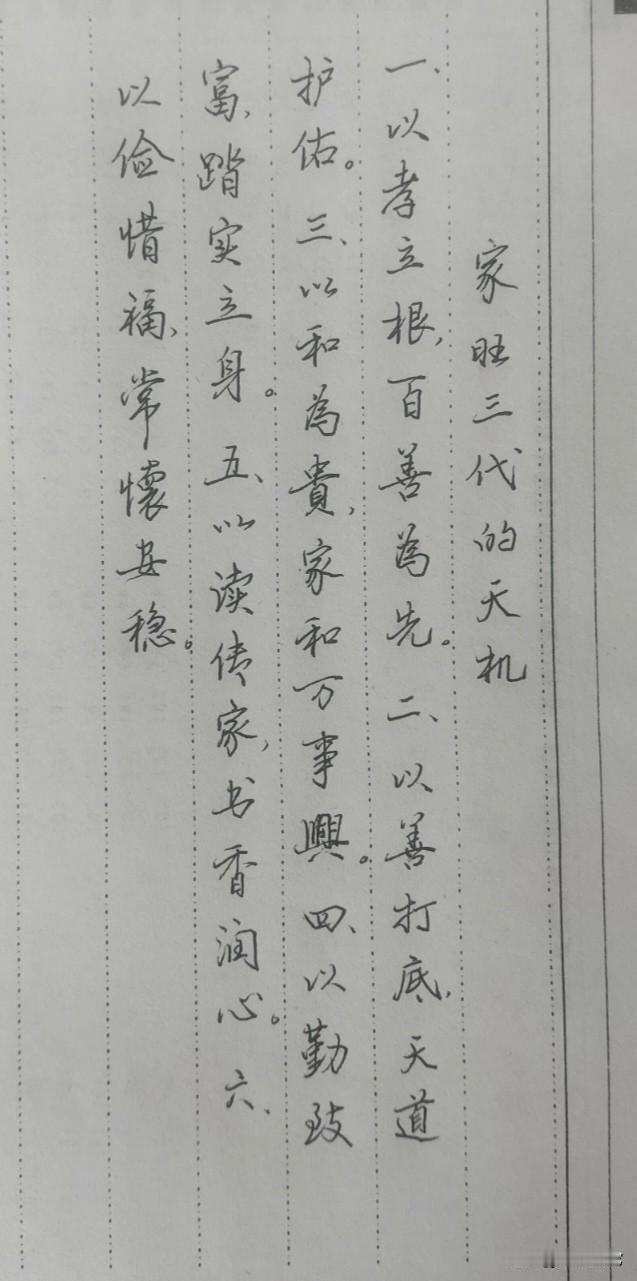 家旺三代的天机
一、以孝立根，百善為先。二、以善打底，天道
护佑。三、以和為貴，家和万事興。四、以勤致
富，踏实立身。五、以读传家，书香润心。六、
以俭惜福，常懷安稳。